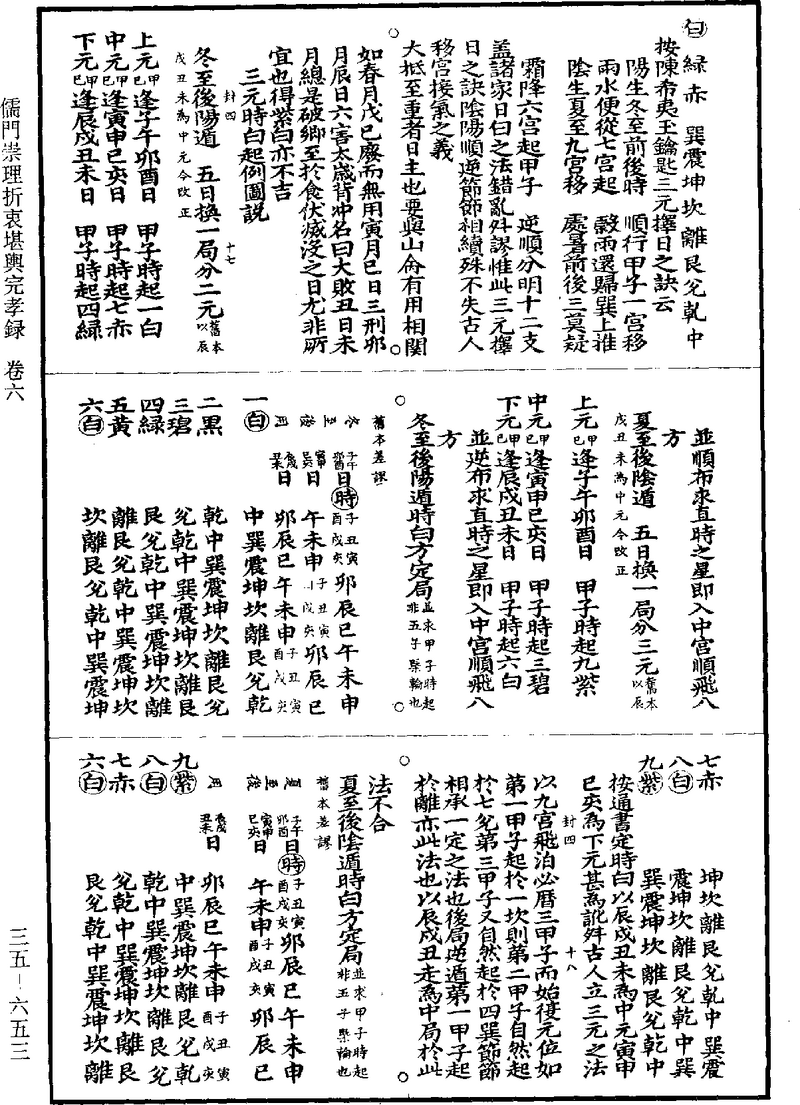 儒門崇理折衷堪輿完孝録 卷六
三五－六五三
白 緑赤 巽震坤坎離艮兌乾中
按陳希夷玉鑰匙三元擇日之訣云
陽生冬至前後時 順行甲子一宮移
雨水便從七宮起 穀雨還歸巽上推
陰生夏至九宮移 處暑前後三莫疑
霜降六宮起甲子 逆順分明十二支
蓋諸家日白之法錯亂舛謬惟此三元擇
日之訣陰陽順逆節節相續殊不失古人
移宮接氣之義
大抵至重者日主也要與山命有用相關
如春月戊己廢而無用寅月巳日三刑卯
月辰日六害太歲背冲名曰大敗丑日未
月總是破鄉至於食伏滅沒之日尤非所
宜也得紫白亦不吉
三元時白起例圖説
封四 十七
冬至後陽遁 五日換一局分二元舊本以辰
戌丑未為中元今改正
上元甲己逢子午卯酉日 甲子時起一白
中元甲己逢寅申巳亥日 甲子時起七赤
下元甲己逢辰戌丑未日 甲子時起四緑
並順布求直時之星即入中宮順飛八
方
夏至後陰遁 五日換一局分三元舊本以辰
戌丑未為中元今改正
上元甲己逢子午卯酉日 甲子時起九紫
中元甲己逢寅申巳亥日 甲子時起三碧
下元甲己逢辰戌丑未日 甲子時起六白
並逆布求直時之星即入中宮順飛八
方
冬至後陽遁時白方定局並求甲子時起非五子縣輪也
舊本差謬
冬 子午卯酉日時子丑寅卯辰巳午未申酉戌亥
至 寅申巳亥日 午未申酉戌亥子丑寅卯辰巳
後
四 辰戌丑未日 卯辰巳午未申酉戌亥子丑寅
一白 中巽震坤坎離艮兌乾
二黑 乾中巽震坤坎離艮兌
三碧 兌乾中巽震坤坎離艮
四緑 艮兌乾中巽震坤坎離
五黃 離艮兌乾中巽震坤坎
六白 坎離艮兌乾中巽震坤
七赤 坤坎離艮兌乾中巽震
八白 震坤坎離艮兌乾中巽
九紫 巽震坤坎離艮兌乾中
按通書定時白以辰戌丑未為中元寅申
巳亥為下元甚為訛舛古人立三元之法
封四 十八
以九宮飛泊必曆三甲子而始復元位如
第一甲子起於一坎則第二甲子自然起
於七兌第三甲子又自然起於四巽節節
相承一定之法也後局逆遁第一甲子起
於離亦此法也以辰戌丑走為中局於此
法不合
夏至後陰遁時白方定局並求甲子時起非五子縣輪也
舊本差謬
夏 子午卯酉日時子丑寅卯辰巳午未申酉戌亥
至 寅申巳亥日 午未申酉戌亥子丑寅卯辰巳
後
四 辰戌丑未日 卯辰巳午未申酉戌亥子丑寅
九紫 中巽震坤坎離艮兌乾
八白 乾中巽震坤坎離艮兌
七赤 兌乾中巽震坤坎離艮
六白 艮兌乾中巽震坤坎離